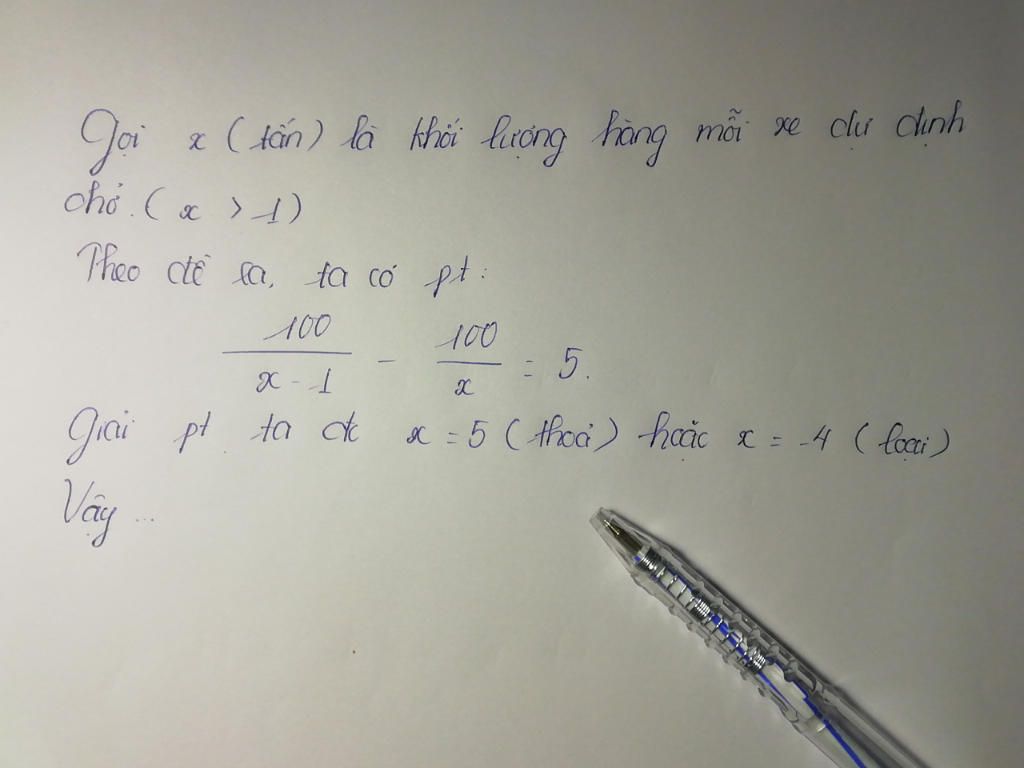 Gọi x (tấn) là khối lượng hàng mỗi xe dự định
chở. ( x > 1)
Theo đề ra, ta có pt:
100/(x - 1) - 100/x = 5.
Giải pt ta đc x = 5 (thoả) hoặc x = -4 (loại)
Vậy ...